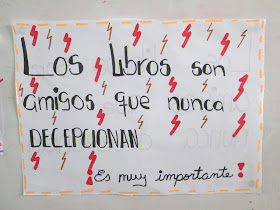 Los Libros son
amigos que nunca
DECEPCIONAN
¡Es muy importante!